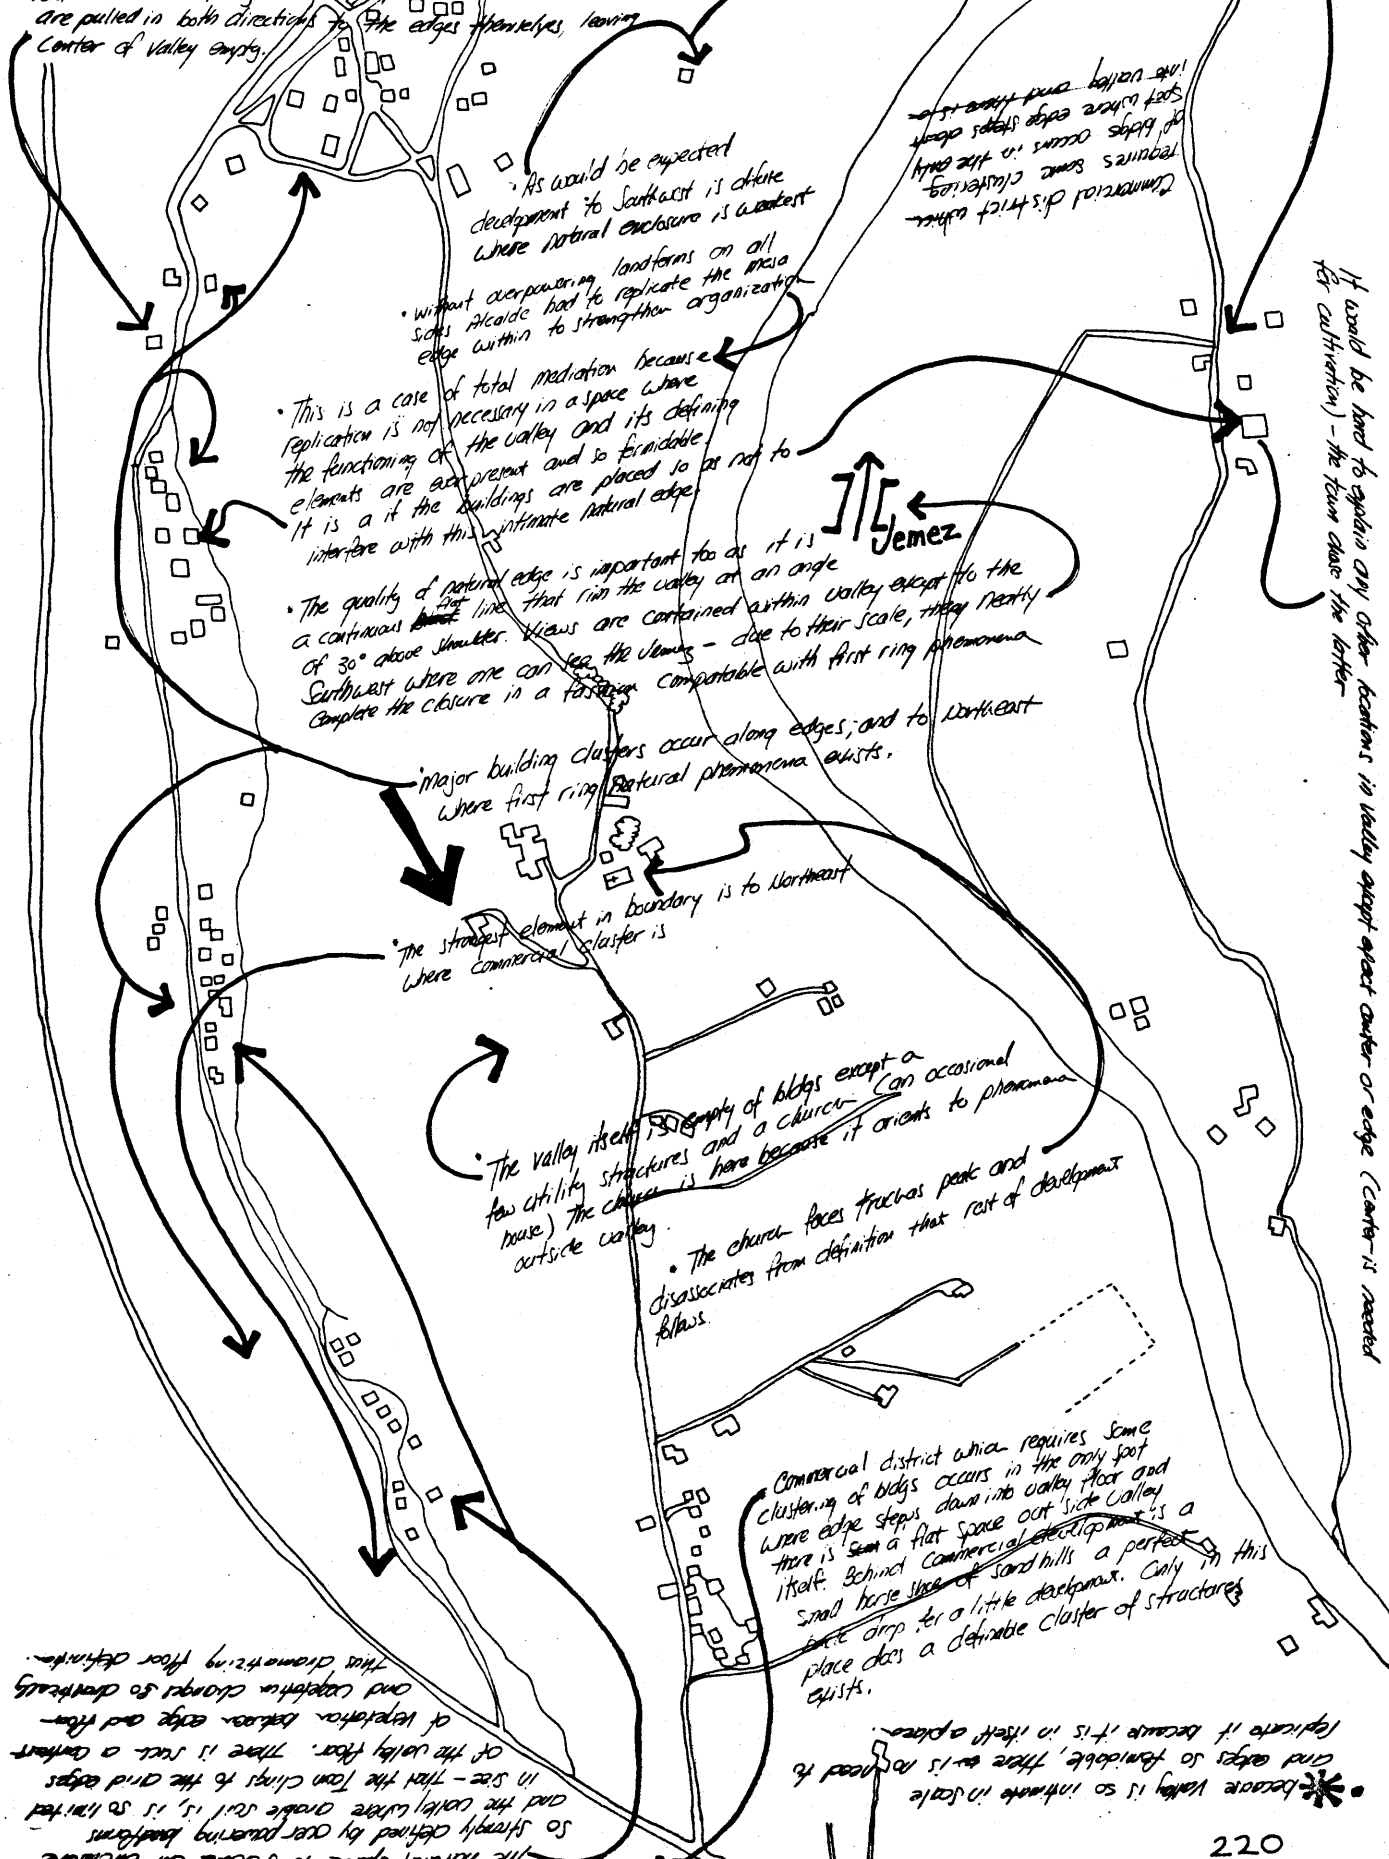 are pulled in both directions to the edges themselves, leaving
center of valley empty.
Commercial district which
requires some clustering
of bldgs occurs in the only
spot where edge steps down
into valley and there is a
• As would be expected
development to Southwest is difuse
where natural enclosure is weakest
• without overpowering landforms on all
sides Alcalde had to replicate the mesa
edge within to strengthen organization
• This is a case of total mediation because
replication is not necessary in a space where
the functioning of the valley and its defining
elements are ever present and so formidable.
It is a if the buildings are placed so as not to
interfere with this intimate natural edge.
Jemez
• The quality of natural edge is important too as it is
a continuous flat line that rim the valley at an angle
of 30° above shoulder. Views are contained within valley except to the
Southwest where one can see the Jemez – due to their scale, they neatly
complete the closure in a fashion compatable with first ring phenomena
• Major building clusters occur along edges; and to Northeast
where first ring natural phenomena exists.
• The strongest element in boundary is to Northeast
where commercial cluster is
• The valley itself is empty of bldgs except a
few utility structures and a church (an occasional
house) The church is here because it orients to phenomena
outside valley.
• The church faces truchas peak and
disassociates from definition that rest of development
follows.
Commercial district which requires some
clustering of bldgs occurs in the only spot
where edge steps down into valley floor and
there is a flat space out side valley
itself. Behind commercial development is a
small horse shoe of sand hills a perfect
back drop for a little development. Only in this
place does a definable cluster of structures
exists.
It would be hard to explain any other locations in valley except exact center or edge (center is needed
for cultivation) – the town chose the latter
• because valley is so intimate in scale
and edges so formidable, there is no need to
replicate it because it is in itself a place.
so strongly defined by over powering landforms
and the valley, where arable soil is, is so limited
in size – that the Town clings to the arid edges
of the valley floor. There is such a contrast
of vegetation between edge and floor
and vegetation changes so drastically
thus dramatizing floor definition.
220